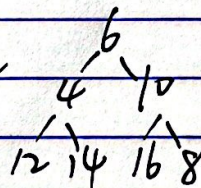 6
4 10
12 14 16 8